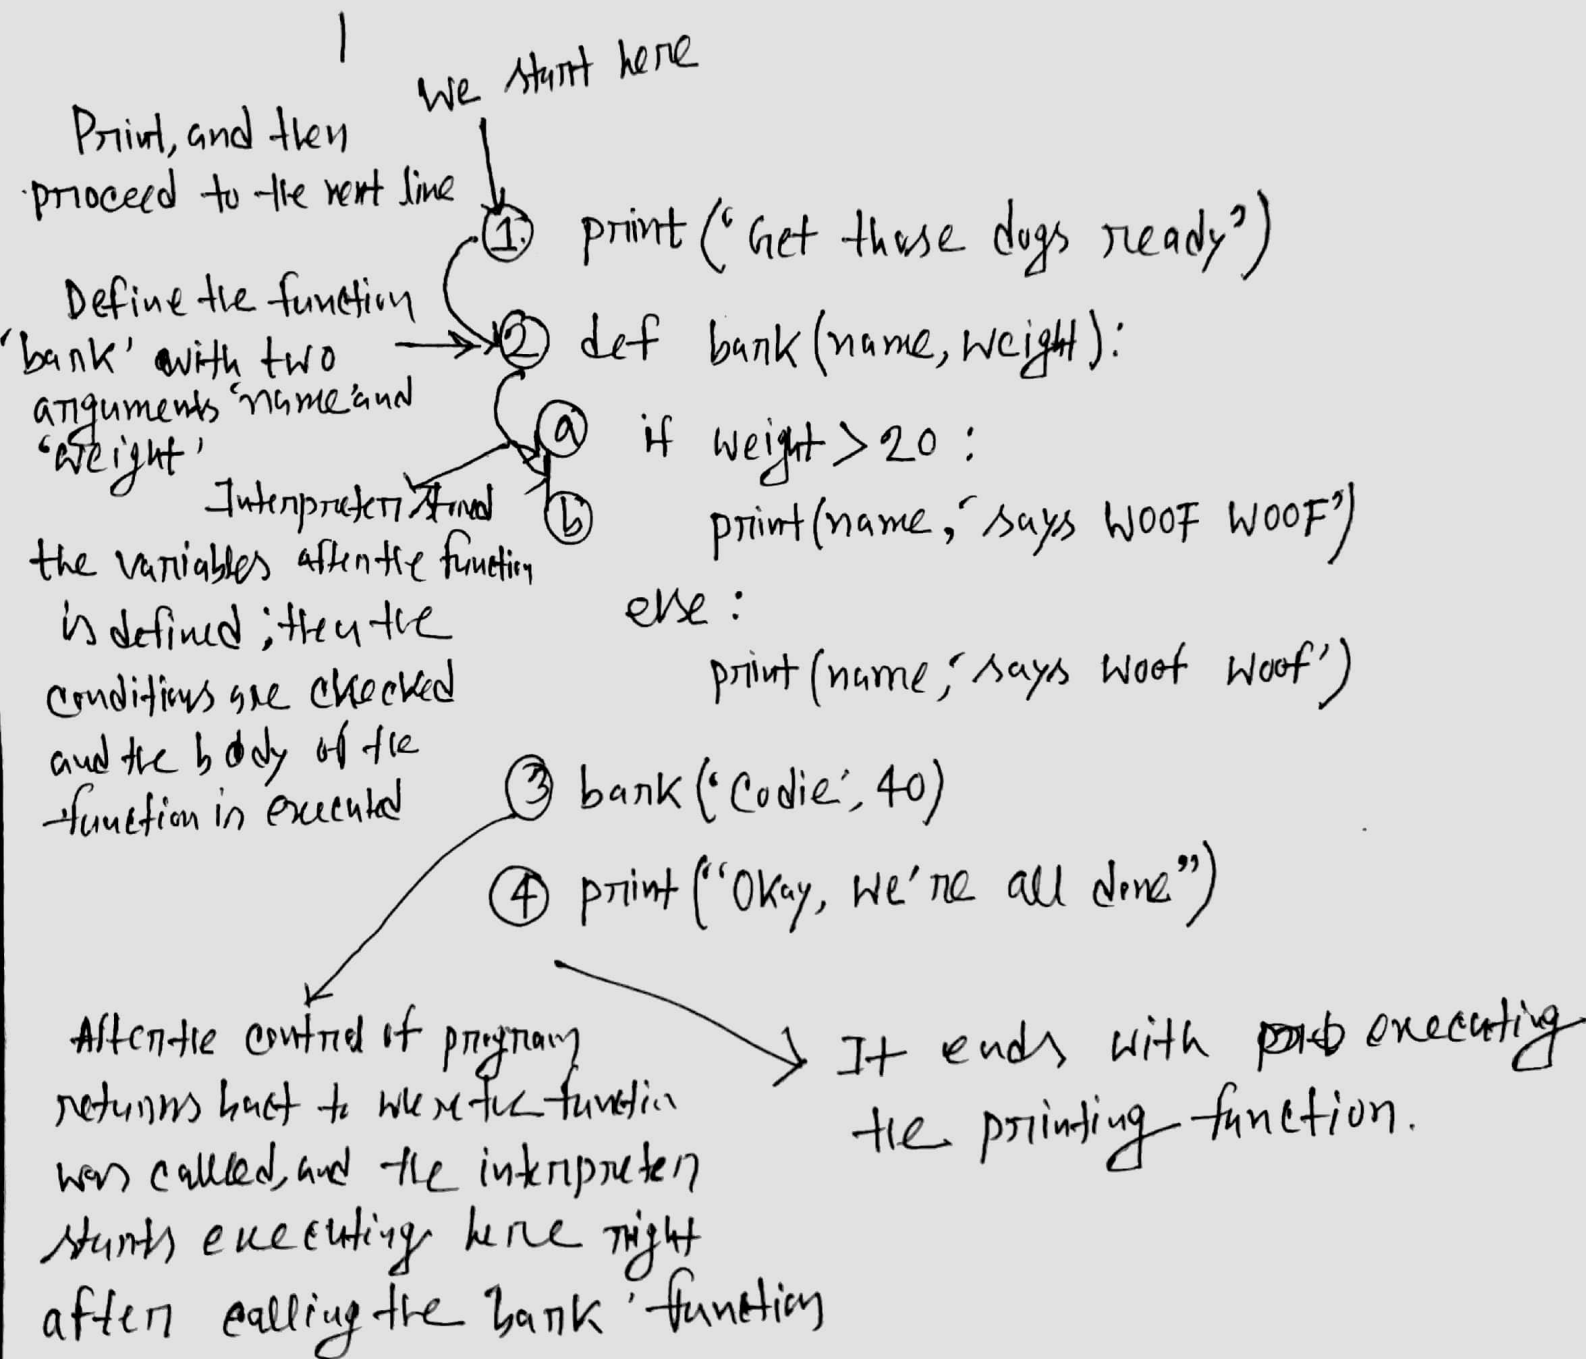 1
We start here
Print, and then
proceed to the next line
1. print ('Get those dogs ready')
Define the function
'bark' with two
arguments 'name' and
'weight'
2 def bark (name, weight):
a if weight > 20 :
b print (name, 'says WOOF WOOF')
else :
print (name, 'says woof woof')
Interpreter stored
the variables after the function
is defined; then the
conditions are checked
and the body of the
function is executed
3 bark ('Codie', 40)
4 print ("Okay, we're all done")
After the control of program
returns back to where the function
was called, and the interpreter
starts executing here right
after calling the bark' function
It ends with executing
the printing function.